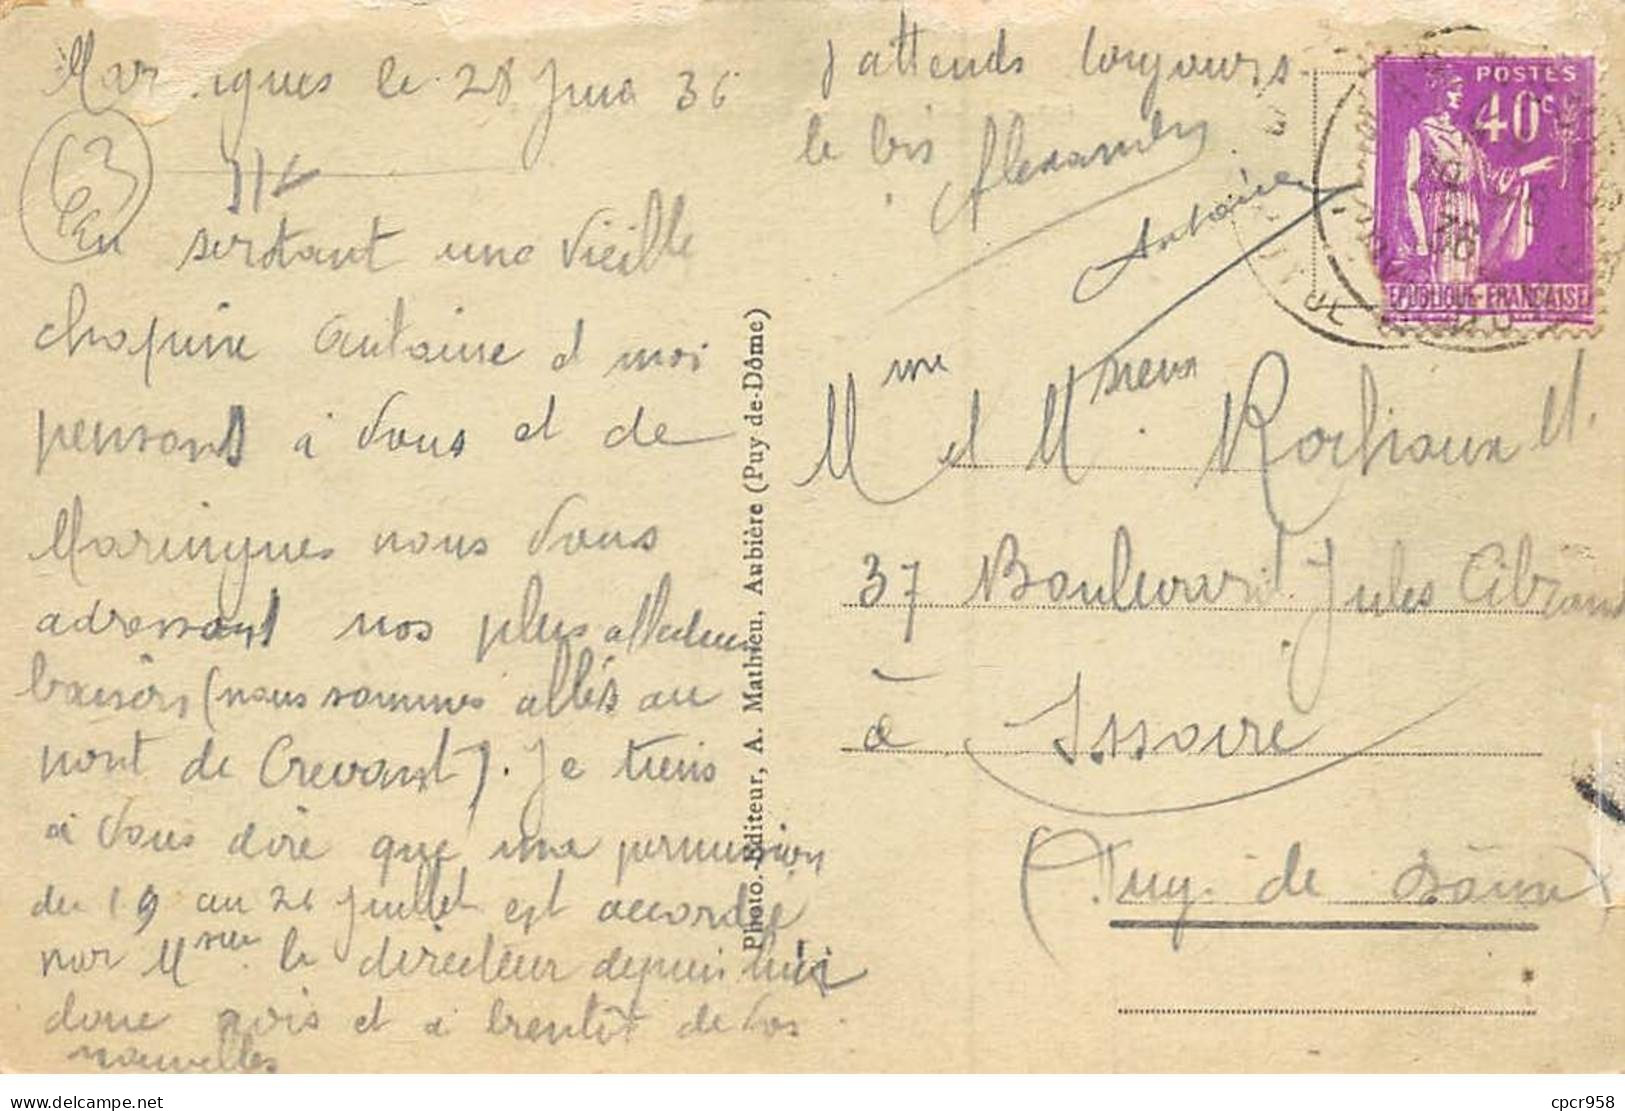 Maringues le 28 Juin 36
63
En sortant une vieille
chopine Antoine et moi
pensons à vous et de
Maringues nous vous
adressons nos plus affectueux
baisers (nous sommes allés au
pont de Crevant). Je tiens
à vous dire que une permission
du 19 au 26 Juillet est accordée
par Msieur le directeur depuis hier
donc et à bientôt de vos
nouvelles
j'attends toujours
le
Alexandre
Antoine
POSTES
40c
REPUBLIQUE FRANÇAISE
Mme et Msieur
37 Boulevard Jules
à Issoire
(Puy de Dôme)
Photo.-Editeur, A. Mathieu, Aubière (Puy-de-Dôme)
cpcr958